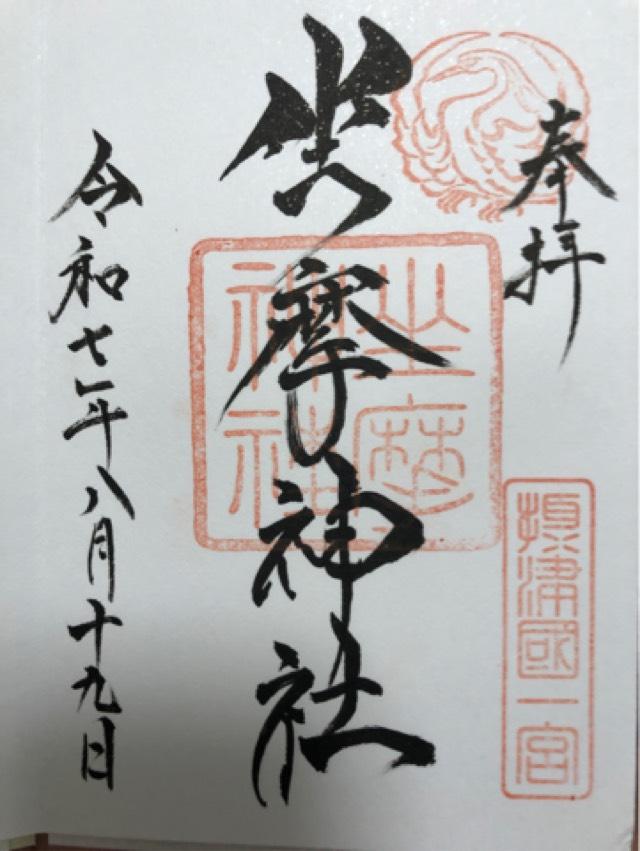 奉拝
摂津國一宮
坐摩神社
坐摩神社
令和七年八月十九日